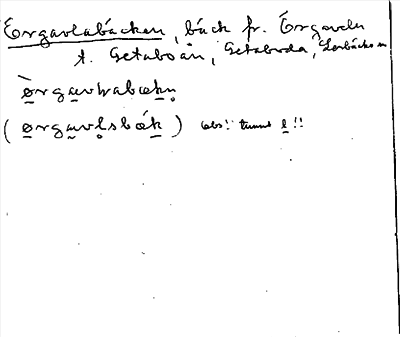 Örgavlabäcken, bäck fr. Örgaveln
t. Getaboån, Getaboda, Lerbäcks sn
ørgavlabækn̥
(ørgavl̥sbæk) obs! tunnt l!!